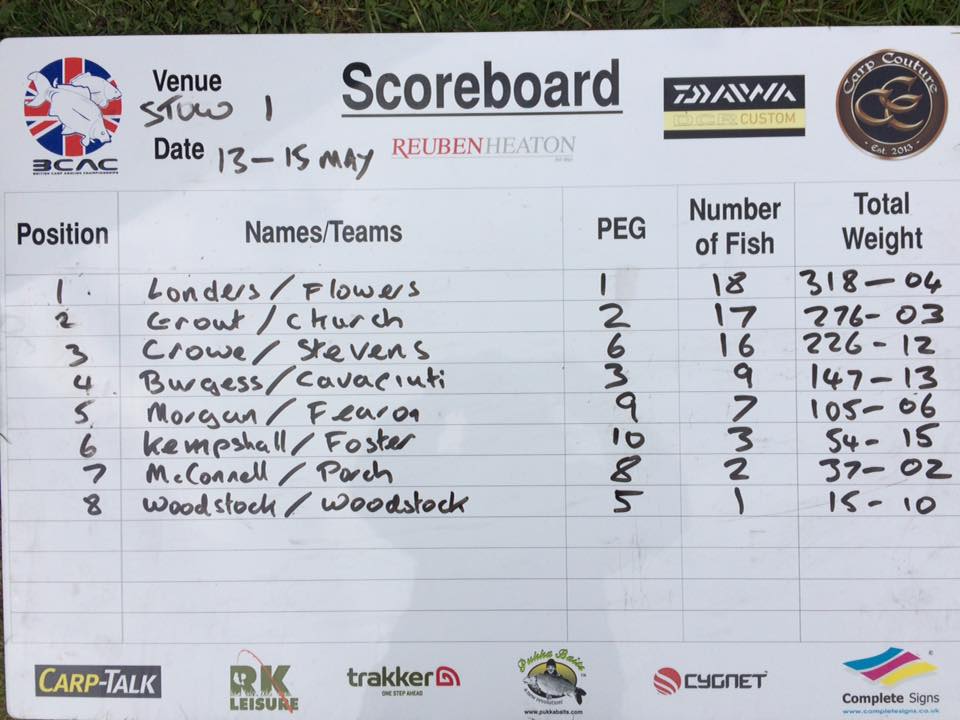 Venue Scoreboard
STOW 1
Date 13-15 MAY
BCAC
BRITISH CARP ANGLING CHAMPIONSHIPS
REUBEN HEATON
DAIWA
DCR CUSTOM
Carp Couture
CC
- Est. 2013 -
Position Names/Teams PEG Number of Fish Total Weight
1 Londers / Flowers 1 18 318-04
2 Grout / Church 2 17 276-03
3 Crowe / Stevens 6 16 226-12
4 Burgess / Cavaciuti 3 9 147-13
5 Morgan / Fearon 9 7 105-06
6 Kempshall / Foster 10 3 54-15
7 McConnell / Porch 8 2 37-02
8 Woodstock / Woodstock 5 1 15-10
CARP-TALK
RK
LEISURE
trakker
ONE STEP AHEAD
Pukka Baits
www.pukkabaits.com
CYGNET
Complete Signs
www.completesigns.co.uk